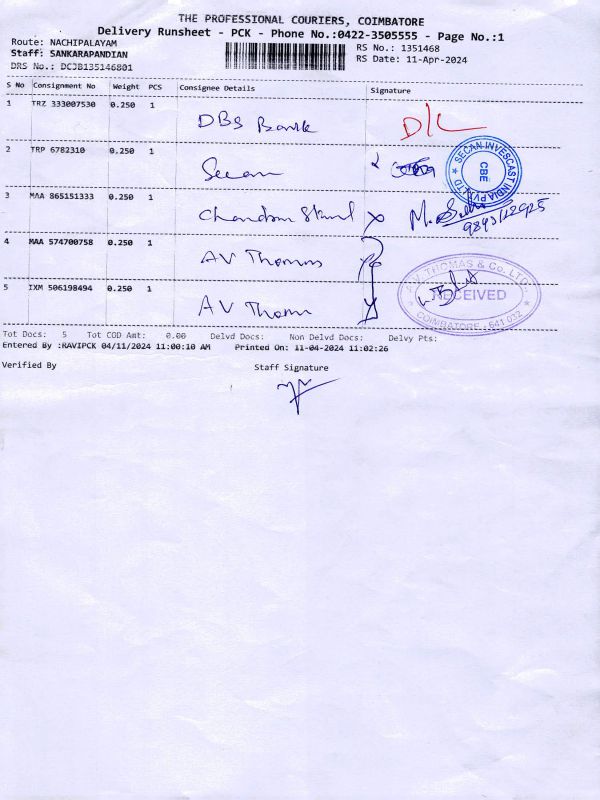 THE PROFESSIONAL COURIERS, COIMBATORE
Delivery Runsheet - PCK - Phone No.:0422-3505555 - Page No.:1
Route: NACHIPALAYAM RS No.: 1351468
Staff: SANKARAPANDIAN RS Date: 11-Apr-2024
DRS No.: DCJB135146801
S No Consignment No Weight PCS Consignee Details Signature
1 TRZ 333007530 0.250 1
DBS Bank D/L
2 TRP 6782310 0.250 1
Secan
SECAN INVESCAST INDIA PVT LTD
CBE
3 MAA 865151333 0.250 1
M.
4 MAA 574700758 0.250 1
AV Thomas
A.V. THOMAS & Co. LTD.
RECEIVED
COIMBATORE - 641 032
5 IXM 506198494 0.250 1
AV Thom
Tot Docs: 5 Tot COD Amt: 0.00 Delvd Docs: Non Delvd Docs: Delvy Pts:
Entered By :RAVIPCK 04/11/2024 11:00:10 AM Printed On: 11-04-2024 11:02:26
Verified By Staff Signature